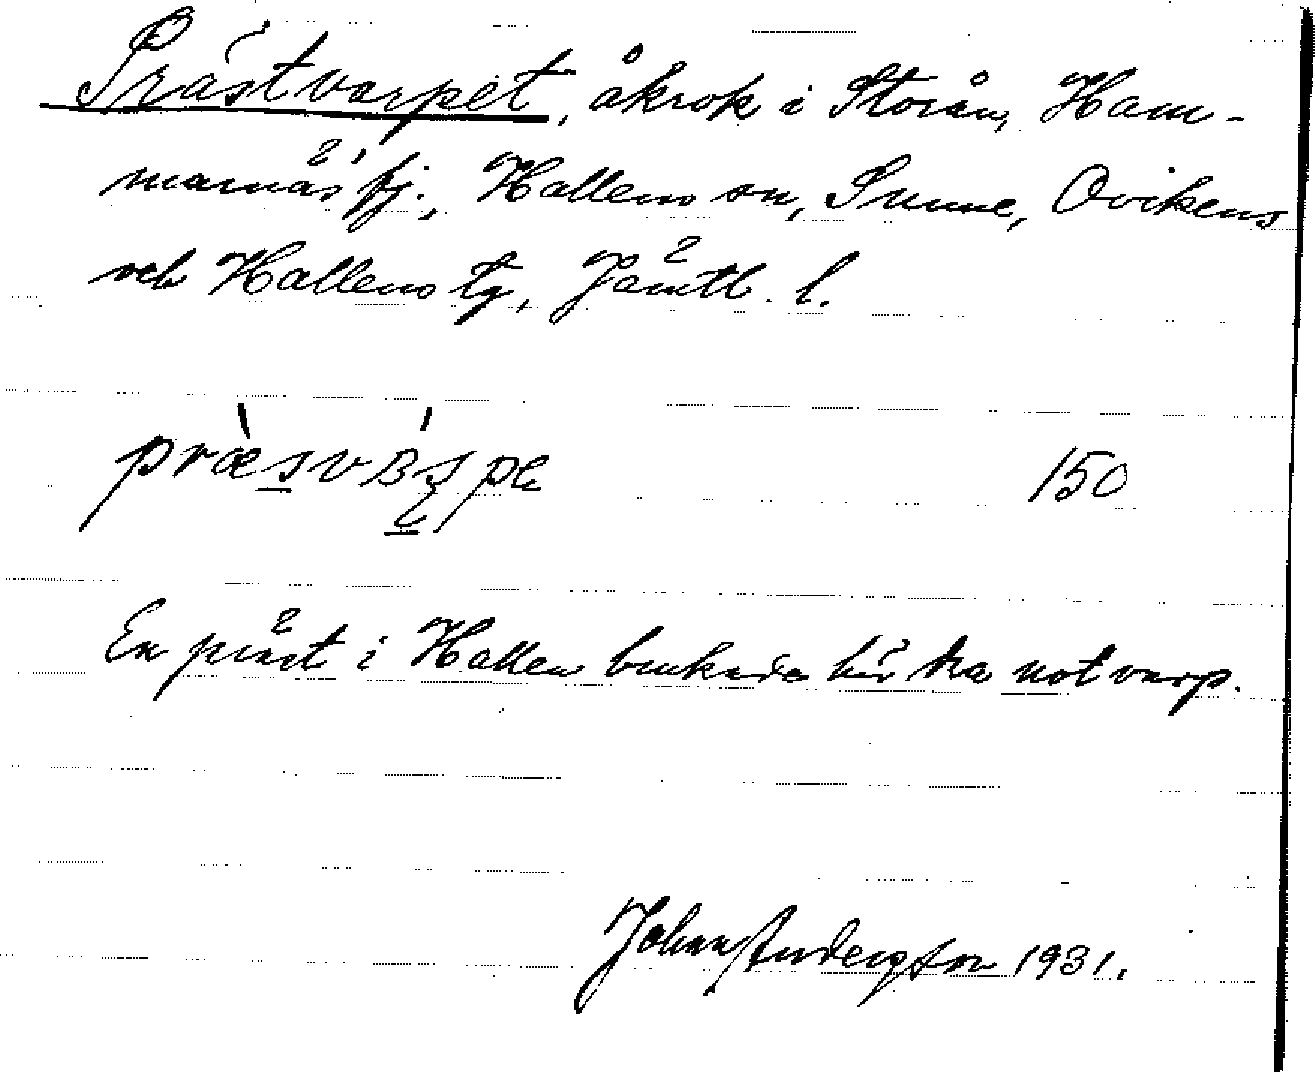 Prästvarpet, åkrok i Storån, Ham-
marnäs fj., Hallens sn, Sunne, Ovikens
och Hallens tg, Jämtl. l.
150
En präst i Hallen brukade här ha notvarp.
Johan Anderson 1931.